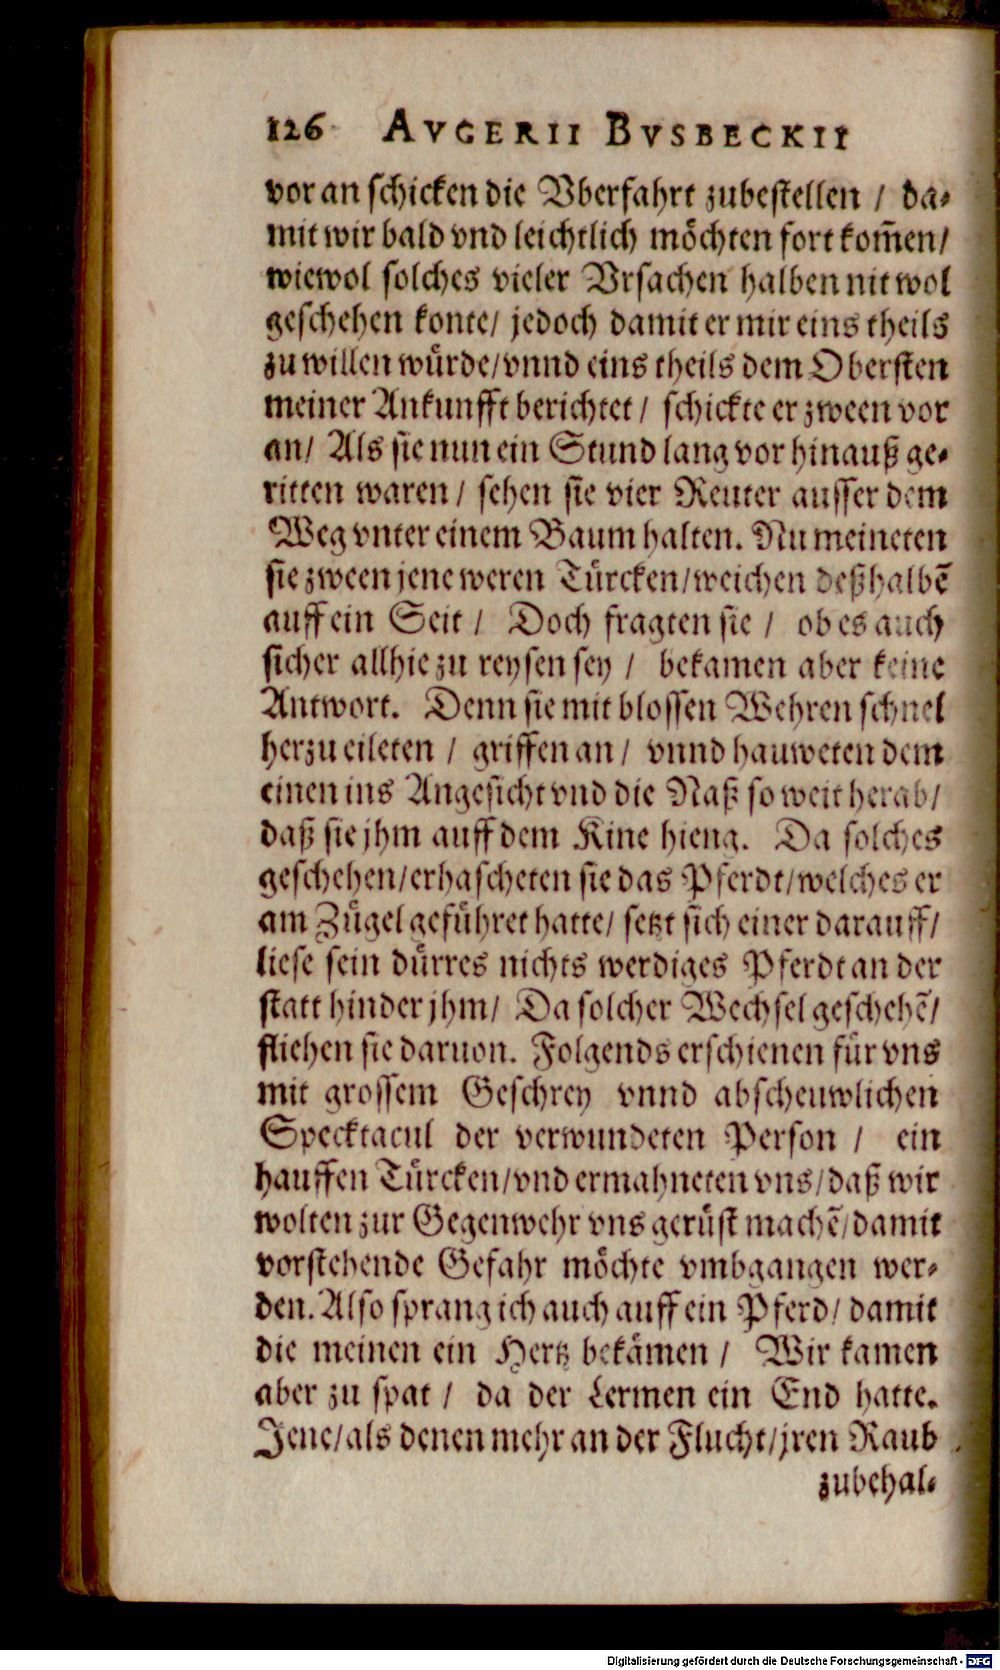 126 AVGERII BVSBECKII
vor an schicken die Vberfahrt zubestellen / da-
mit wir bald vnd leichtlich möchten fort kom̃en/
wiewol solches vieler Vrsachen halben nit wol
geschehen konte/ jedoch damit er mir eins theils
zu willen würde/vnnd eins theils dem Obersten
meiner Ankunfft berichtet / schickte er zween vor
an/ Als sie nun ein Stund lang vor hinauß ge-
ritten waren / sehen sie vier Reuter ausser dem
Weg vnter einem Baum halten. Nu meineten
sie zween jene weren Türcken/weichen deßhalbẽ
auff ein Seit / Doch fragten sie / ob es auch
sicher allhie zu reysen sey / bekamen aber keine
Antwort. Denn sie mit blossen Wehren schnel
herzu eileten / griffen an / vnnd hauweten dem
einen ins Angesicht vnd die Naß so weit herab/
daß sie jhm auff dem Kine hieng. Da solches
geschehen/erhascheten sie das Pferdt/welches er
am Zügel geführet hatte/ setzt sich einer darauff/
liese sein dürres nichts werdiges Pferdt an der
statt hinder jhm/ Da solcher Wechsel geschehẽ/
fliehen sie daruon. Folgends erschienen für vns
mit grossem Geschrey vnnd abscheuwlichen
Specktacul der verwundeten Person / ein
hauffen Türcken/vnd ermahneten vns/daß wir
wolten zur Gegenwehr vns gerüst machẽ/damit
vorstehende Gefahr möchte vmbgangen wer-
den. Also sprang ich auch auff ein Pferd/ damit
die meinen ein Hertz bekämen / Wir kamen
aber zu spat / da der Lermen ein End hatte.
Jene/als denen mehr an der Flucht/jren Raub
zubehal-
Digitalisierung gefördert durch die Deutsche Forschungsgemeinschaft - DFG